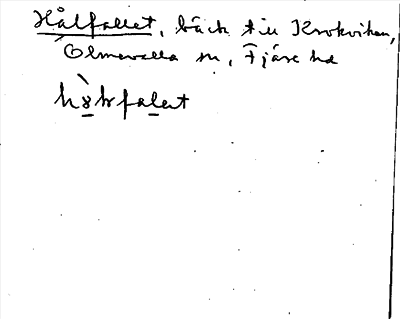 Hålfallet, bäck till Krokviken,
Ölmevalla sn, Fjäre hd